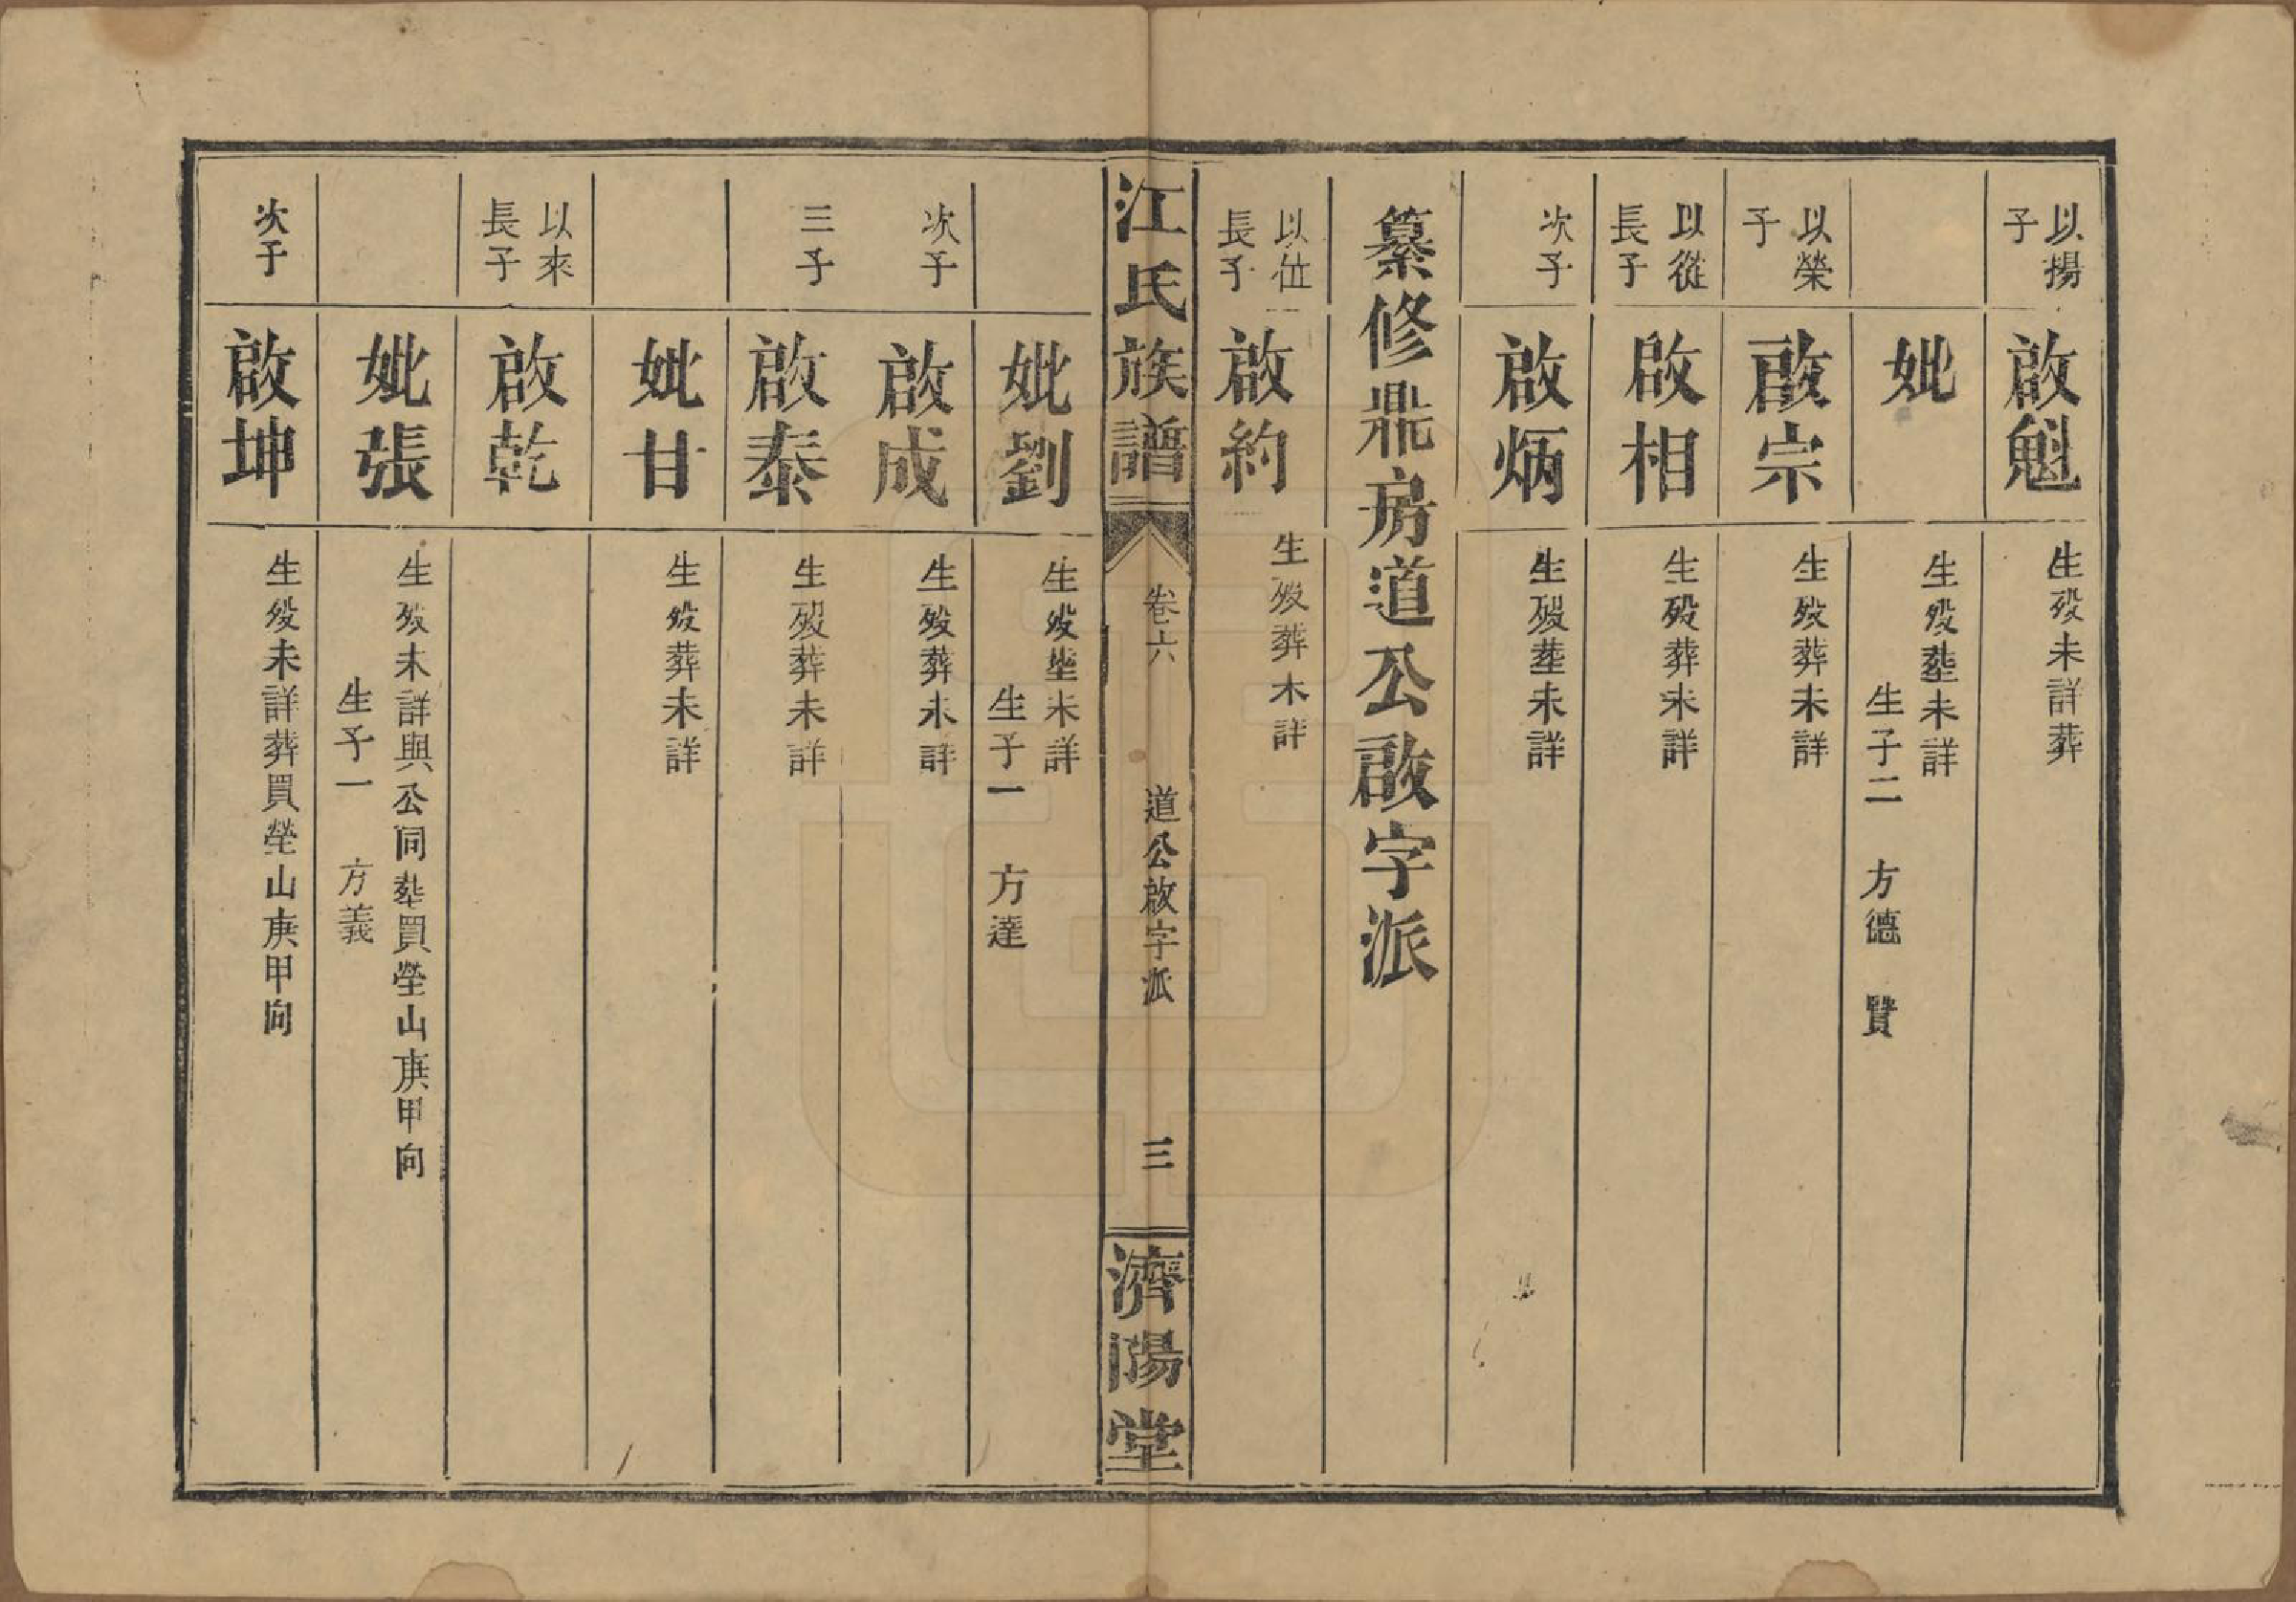 以揚
子
啟魁
生歿未詳葬
妣
生歿塟未詳
生子二　方德　賢
以榮
子
啟宗
生歿葬未詳
以從
長子
啟相
生歿葬未詳
次子
啟炳
生歿塟未詳
纂修鼎房道公啟字派
以位
長子
啟約
生歿葬木詳
江氏族譜
卷六
道公啟字派
三
濟陽堂
妣劉
生歿塟未詳
生子一　方達
次子
啟成
生歿葬未詳
三子
啟泰
生歿葬未詳
妣甘
生歿葬未詳
以來
長子
啟乾
妣張
生歿未詳與公同塟買塋山庚甲向
生子一　方義
次子
啟坤
生歿未詳葬買塋山庚甲向